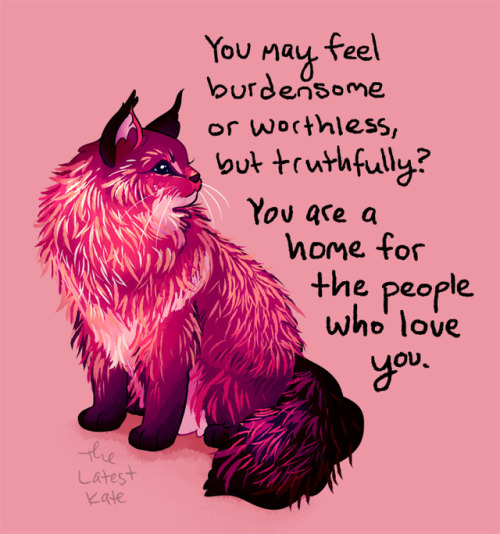 You may feel
burdensome
or worthless,
but truthfully?
You are a
home for
the people
who love
you.
The
Latest
Kate